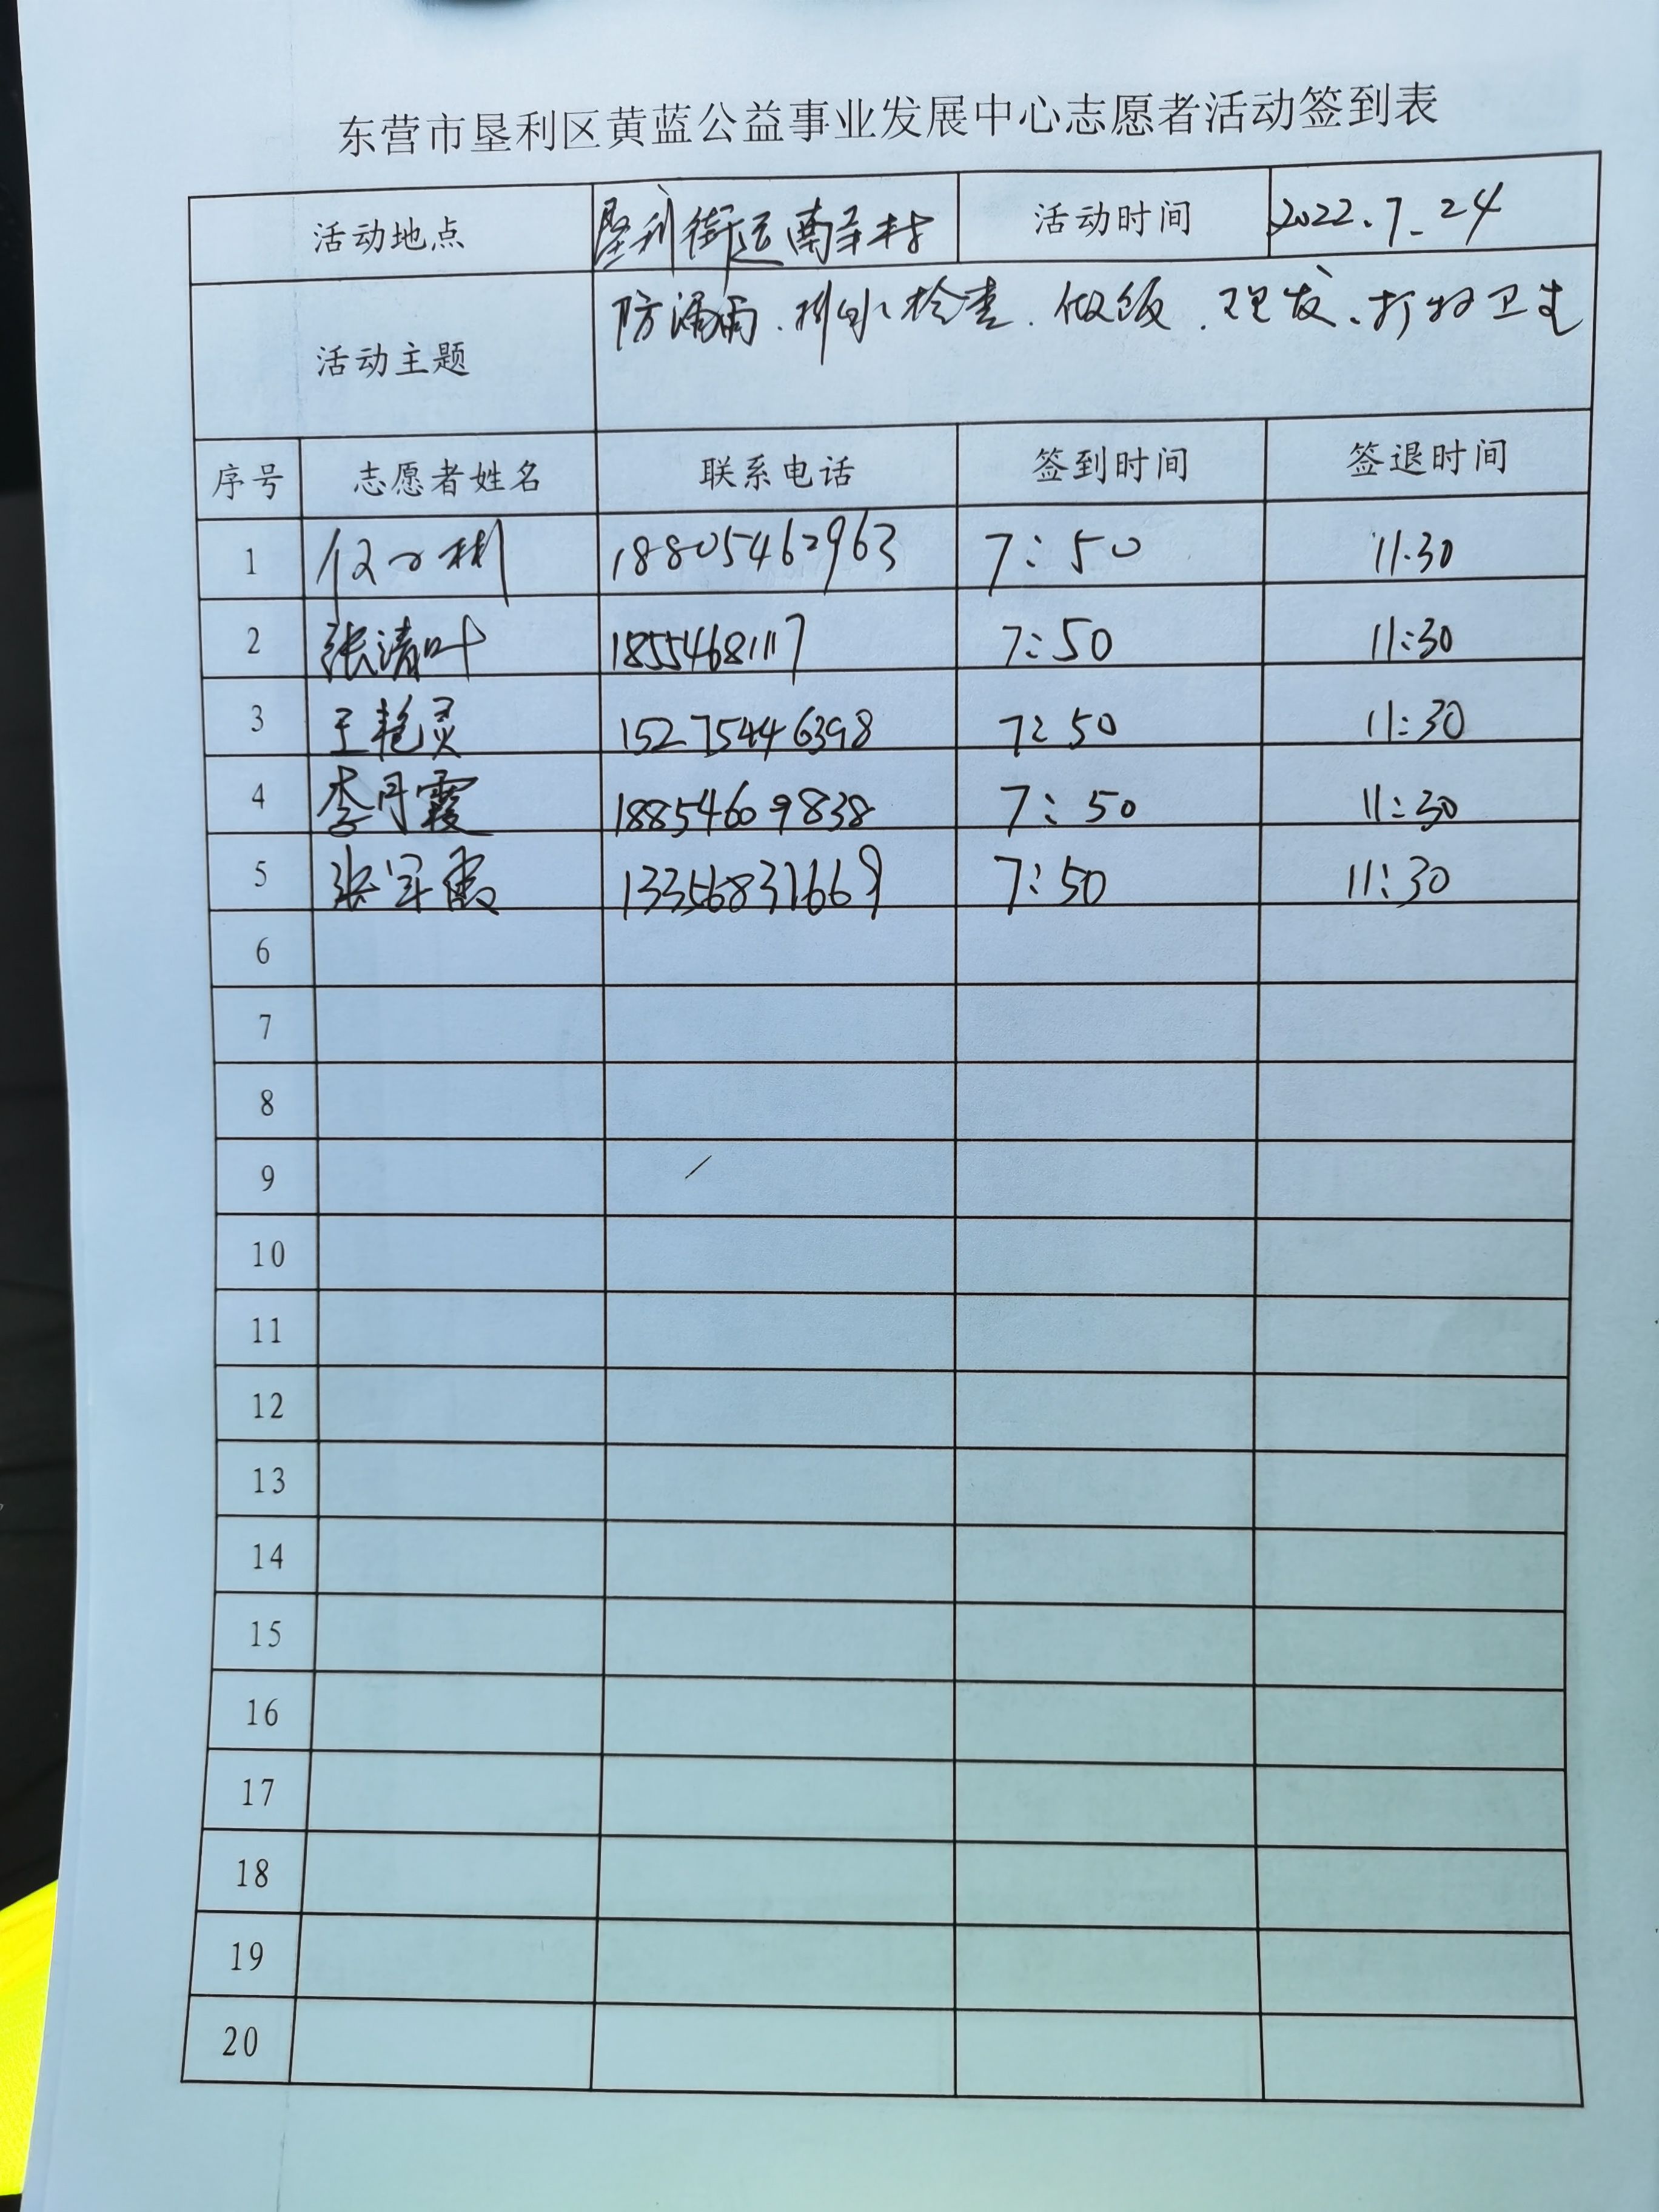 东营市垦利区黄蓝公益事业发展中心志愿者活动签到表
活动地点 垦利街道南羊村 活动时间 2022.7.24
防漏雨、排水检查、做饭、理发、打扫卫生
活动主题
序号 志愿者姓名 联系电话 签到时间 签退时间
1 18805462963 7:50 11.30
2 张清叶 18554681117 7:50 11:30
3 王艳灵 15275446398 7:50 11:30
4 李月霞 18854609838 7:50 11:30
5 张军霞 13356831669 7:50 11:30
6
7
8
9
10
11
12
13
14
15
16
17
18
19
20